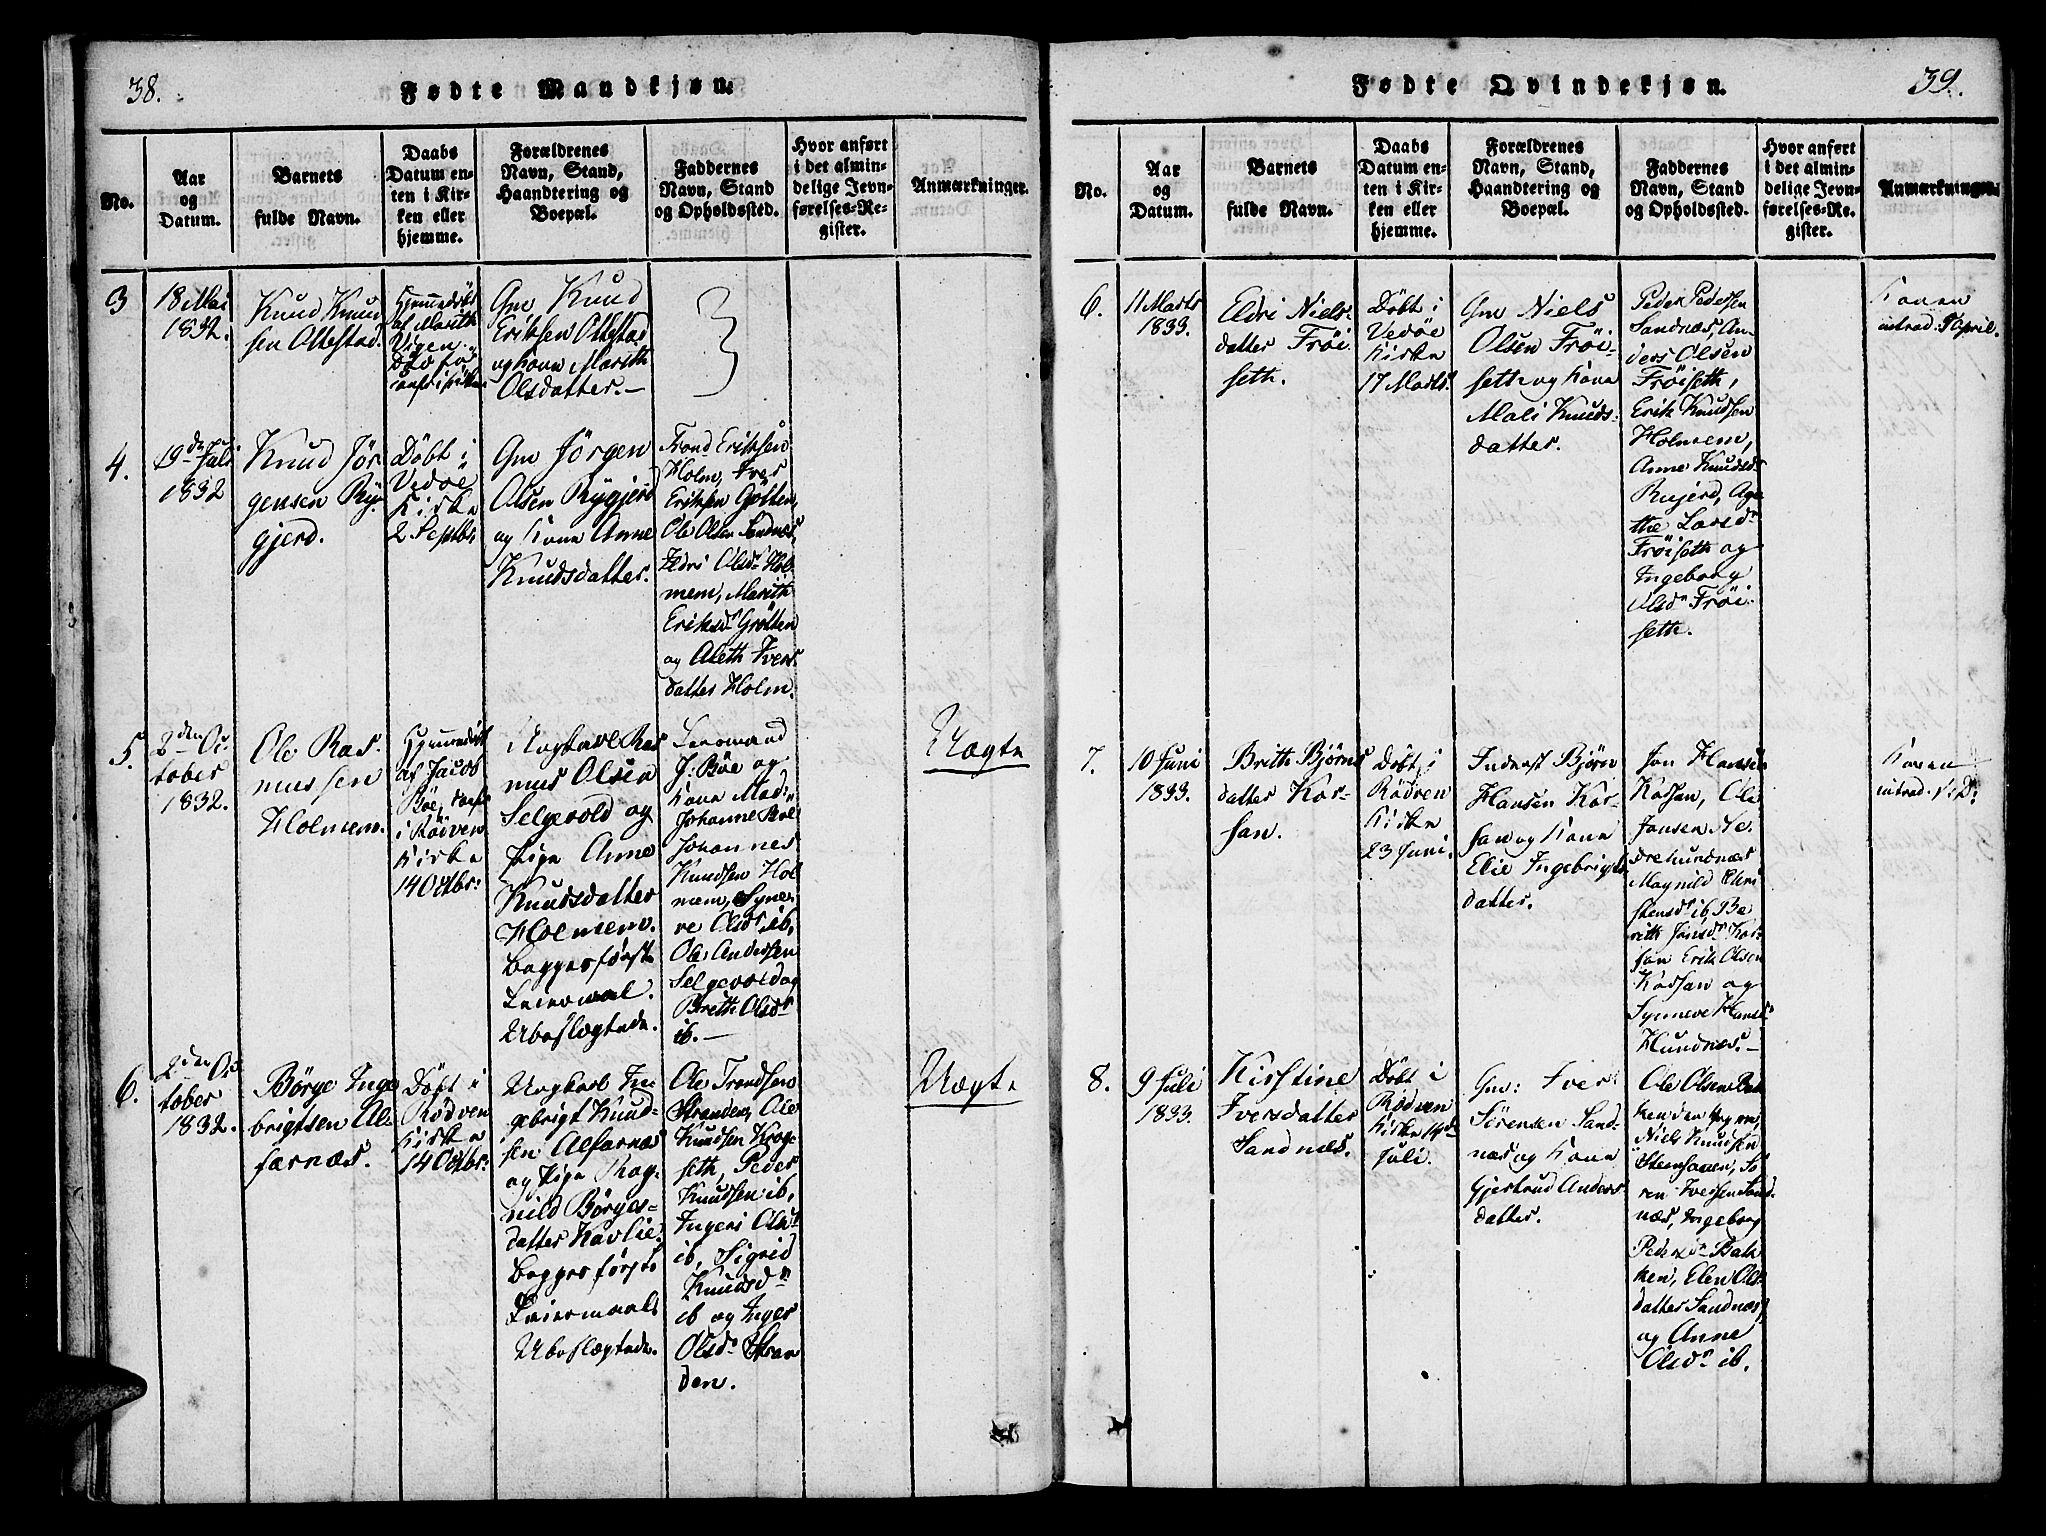 38.
Fødte Mandkjøn.
No.
Aar
og
Datum.
Barnets
fulde Navn.
Daabs
Datum en-
ten i Kir-
ken eller
hjemme.
Forældrenes
Navn, Stand,
Haandtering og
Boepæl.
Faddernes
Navn, Stand
og Opholdssted.
Hvor anført
i det almin-
delige Jevn-
førelses-Re-
gister.
Anmærkninger.
3
18 Mai
1832.
Knud Knud
sen Ottestad.
Hjemmedøbt
af Marith
Vigen
Gm Knud
Eriksen Ottestad
og Kone Marith
Olsdatter.—
4.
19de Juli
1832
Knud Jør
gensen Ry
gjerd.
Døbt i
Vedöe
Kirke
2 Septbr.
Gm Jörgen
Olsen Rygjerd
og Kone Anne
Knudsdatter.
Trond Eriksen
Holm, Iver
Eriksen Grötten,
Ole Olsen Sandnæs,
Eldri Olsdr Hol
mem, Marith
Eriksdr Grötten
og Aleth Ivers
datter Holm.
5.
2den Oc
tober
1832.
Ole Ras
mussen
Holmem.
Hjemmedøbt
af Jacob
Böe,
i Rödven
Kirke
14 Octbr:
Ungkarl Ras
mus Olsen
Selgevold og
Pige Anne
Knudsdatter
Holmem.
Begges første
Leiermaal.
Ubeslægtede.
Leensmand
J: Böe og
Kone Mad:
Johanne Böe
Johannes
Knudsen Hol
mem, Syne
ve Olsdr ib,
Ole Andersen
Selgevold og
Brith Olsdr
ib.—
Uægte
6.
2den Oc
tober
1832.
Börge Inge
brigtsen Al
farnæs.
Døbt i
Rödven
Kirke
14 Octbr:
Ungkarl In
gebrigt Knud-
sen Alfarnæs
og Pige Rag-
nild Börges-
datter Kavlie.
Begges første
Leiermaal
Ubeslægtede.
Ole Trondsen
Stranden, Ole
Knudsen Krog-
seth, Peder
Knudsen ib,
Ingeri Olsdr
ib, Sigrid
Knudsdr
ib og Inger
Olsdr Stran
den.
Uægte
39.
Fødte Qvindekjøn.
No.
Aar
og
Datum.
Barnets
fulde Navn.
Daabs
Datum en-
ten i Kir-
ken eller
hjemme.
Forældrenes
Navn, Stand,
Haandtering og
Boepæl.
Faddernes
Navn, Stand
og Opholdssted.
Hvor anført
i det almin-
delige Jevn-
førelses-Re-
gister.
Anmærkninger.
6.
11 Marts
1833.
Eldri Niels-
datter Fröi
seth.
Døbt i
Vedöe
Kirke
17 Marts.
Gm Niels
Olsen Fröi-
seth og Kone
Mali Knuds-
datter.
Peder Pedersen
Sandnæs, An-
ders Olsen
Fröiseth,
Erik Knudsen
Holmem,
Anne Knudsdr
Rujerd, Aga-
the Larsdr
Fröiseth og
Ingeborg
Olsdr Fröi-
seth.
Konen
introd. April.
7.
10 Juni
1833.
Brith Björns
datter Kor-
san.
Døbt i
Rödven
Kirke
23 Juni.
Inderst Björn
Hansen Kor-
san og Kone
Elie Ingebrigts
datter.
Jon Hansen
Korsan, Ole
Jonsen Ne
drehundnæs
Magnild Chri
stensdr ib, Be
rith Jonsdr Kor-
san Erik Olsen
Korsan og
Synneve Hansdr
Hundnæs.—
Konen
introd.
8.
9 Juli
1833.
Kirstine
Iversdatter
Sandnæs.
Døbt i
Rödven
Kirke 14de
Juli.
Gm: Iver
Sörensen Sand-
næs og Kone
Gjertrud Anders
datter.
Ole Olsen Bak
ken den yngre,
Niels Knudsen
Steenhaven, Sö
ren Iversen Sand-
næs, Ingeborg
Pedersdr Bak
ken, Elen Ols-
datter Sandnæs,
og Anne
Olsdr ib.